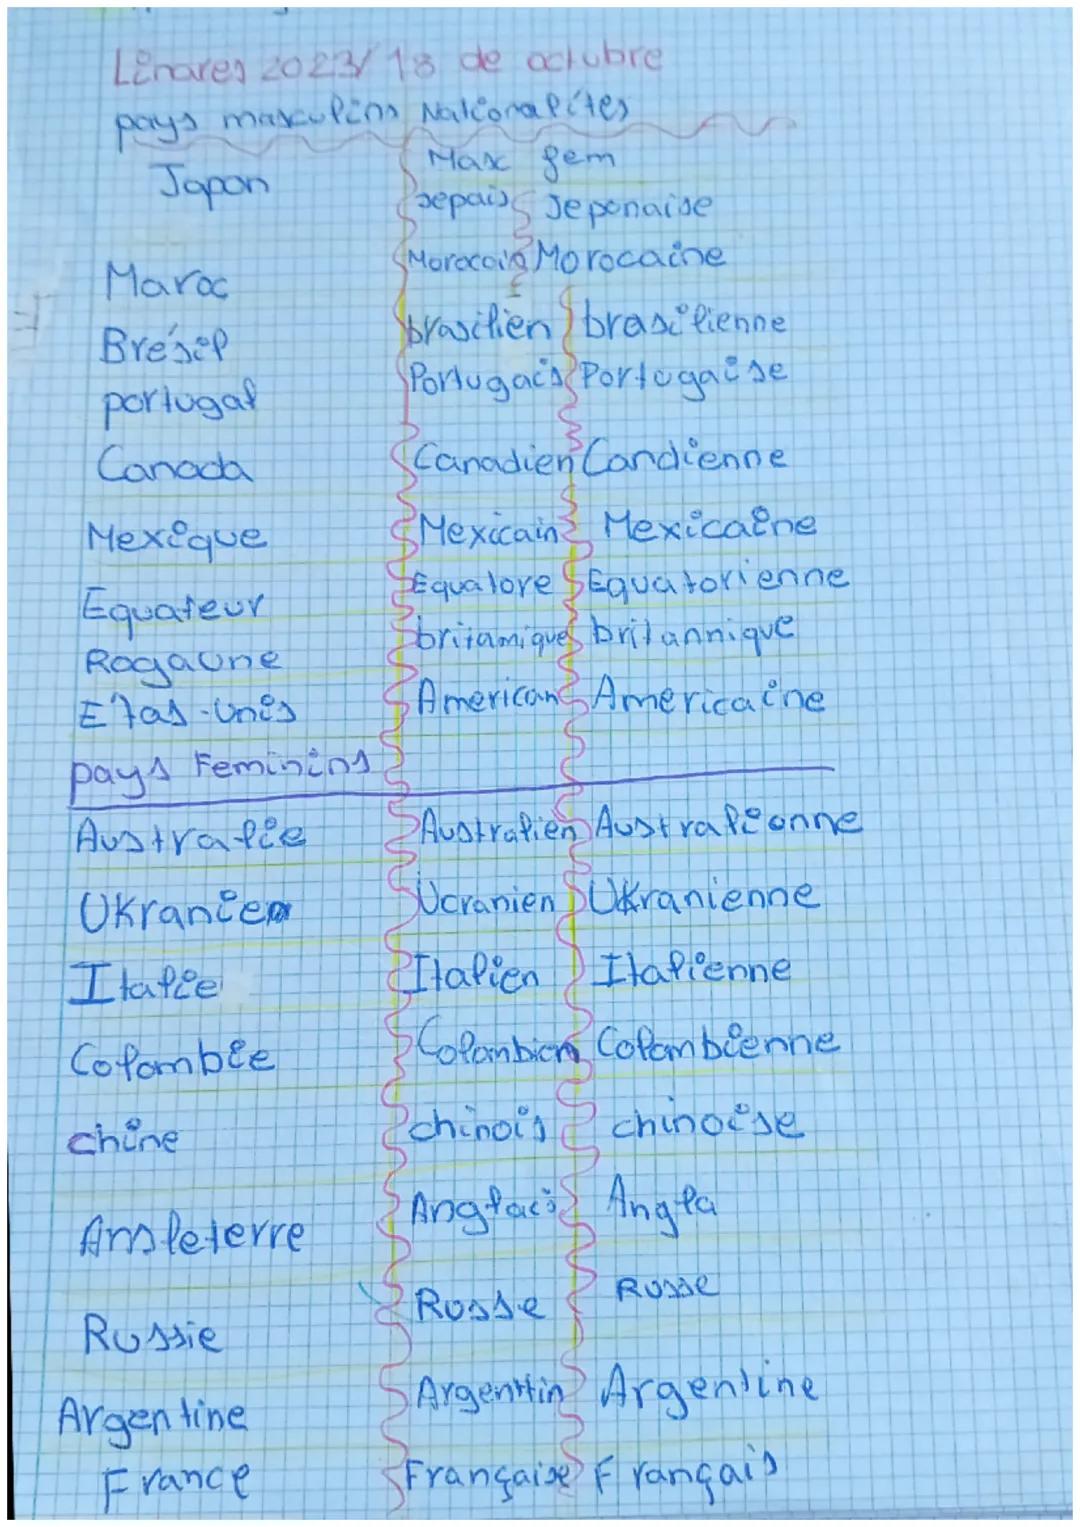 Linares 2023/18 de octubre
pays masculins Nationalités
Masc fem
Japon Jepais Jeponaise
Maroc Morocain Morocaine
Brésil brasilien brasilienne
portugal Portugais Portugaise
Canada Canadien Candienne
Mexique Mexicain Mexicaine
Equateur Equatore Equatorienne
Rogaune britamique britannique
E'tas-unis American Americaine
pays Feminins
Australie Australien Australionne
UKranien Ucranien UKranienne
Italie Italien Italienne
Colombie Colombien Colombienne
chine chinois chinoise
Ansleterre Anglais Angla
Russie Russe Russe
Argentine Argenttin Argentine
France Française Français